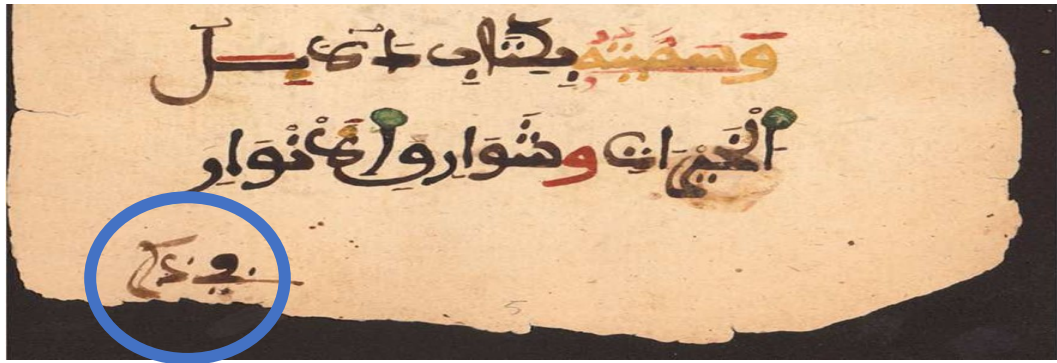 وَسَمَّيْتُهُ بِكِتَابِ دَلَائِلِ
الْخَيْرَاتِ وَشَوَارِقِ الْأَنْوَارِ
في ذكر
5